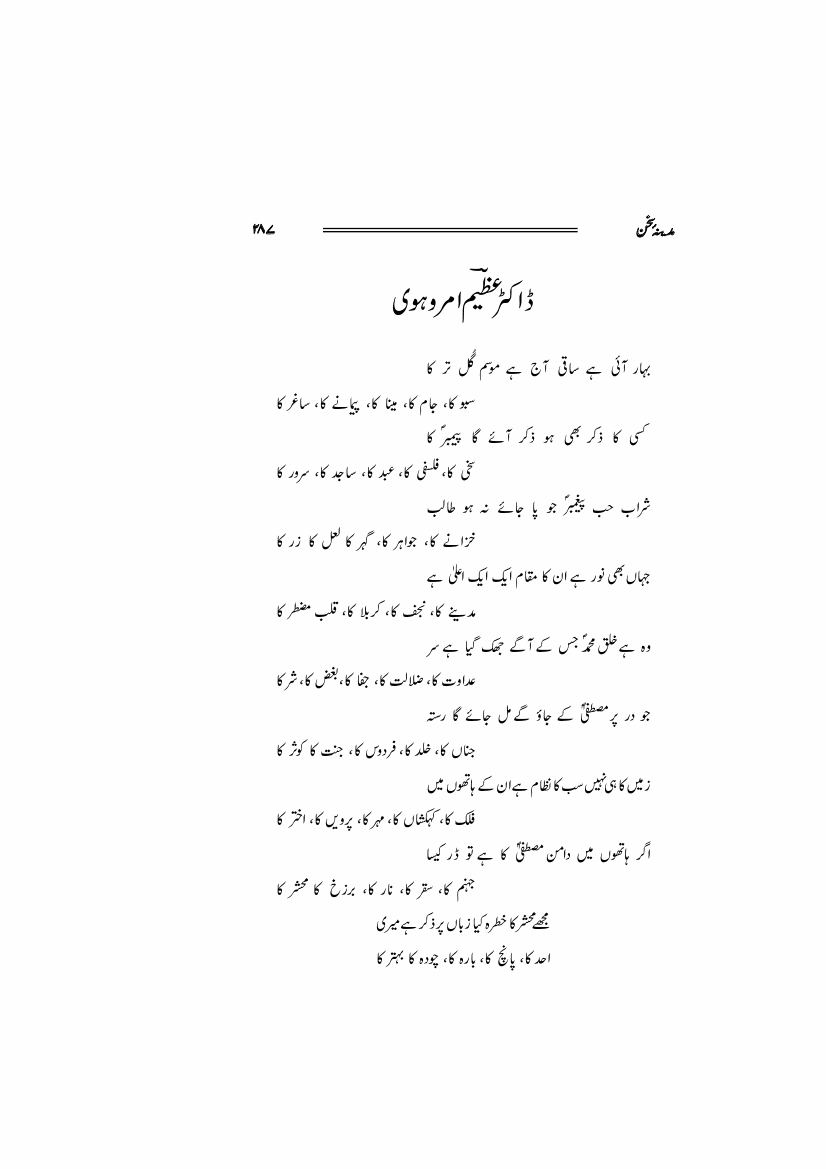 مدینہ سخن ۲۸۷
ڈاکٹر عظیمؔ امروہوی
بہار آئی ہے ساقی آج ہے موسم گُل تر کا
سبو کا، جام کا، مینا کا، پیمانے کا، ساغر کا
کسی کا ذکر بھی ہو ذکر آئے گا پیمبرؐ کا
سخی کا، فلسفی کا، عبد کا، ساجد کا، سرور کا
شراب حب پیغمبرؐ جو پا جائے نہ ہو طالب
خزانے کا، جواہر کا، گہر کا لعل کا زر کا
جہاں بھی نور ہے ان کا مقام ایک ایک اعلیٰ ہے
مدینے کا، نجف کا، کربلا کا، قلب مضطر کا
وہ ہے خلق محمدؐ جس کے آگے جھک گیا ہے سر
عداوت کا، ضلالت کا، جفا کا، بغض کا، شر کا
جو در پر مصطفیٰؐ کے جاؤ گے مل جائے گا رستہ
جناں کا، خلد کا، فردوس کا، جنت کا کوثر کا
زمیں کا ہی نہیں سب کا نظام ہے ان کے ہاتھوں میں
فلک کا، کہکشاں کا، مہر کا، پرویں کا، اختر کا
اگر ہاتھوں میں دامن مصطفیٰؐ کا ہے تو ڈر کیسا
جہنم کا، سقر کا، نار کا، برزخ کا محشر کا
مجھے محشر کا خطرہ کیا زباں پر ذکر ہے میری
احد کا، پانچ کا، بارہ کا، چودہ کا بہتر کا